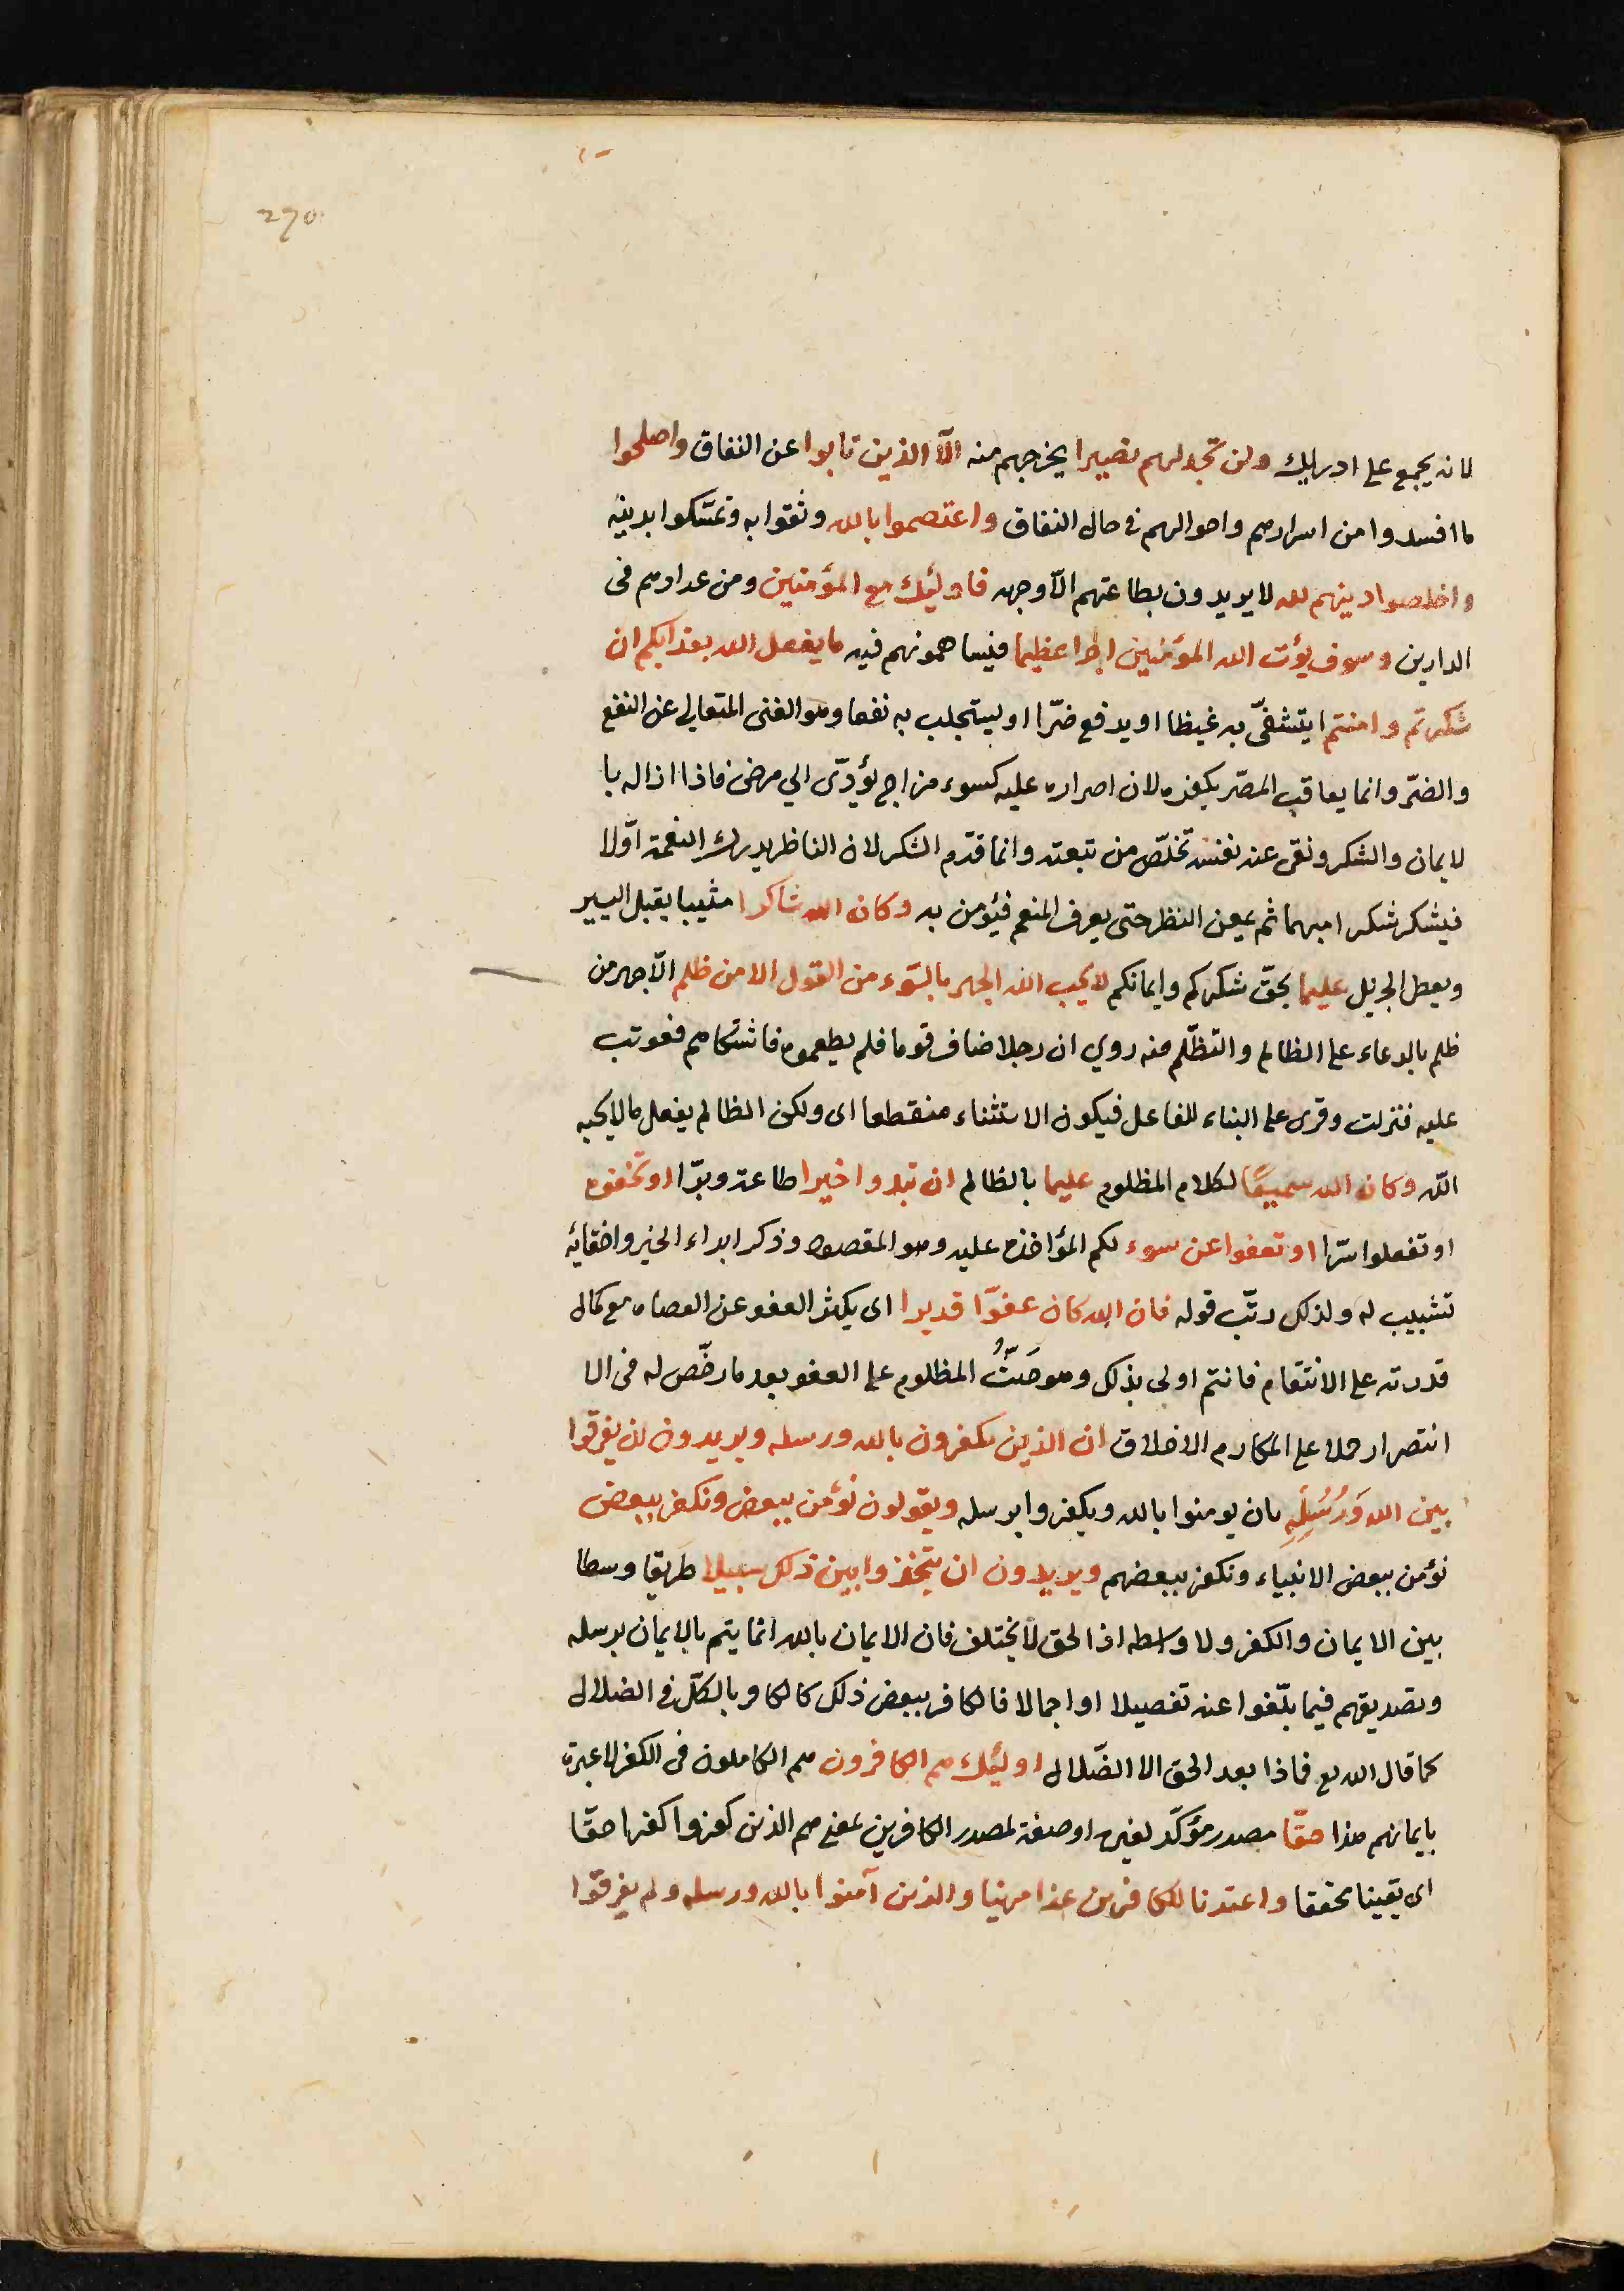 270
لانه يجمع على ادراك ولن تجد لهم نصيرا يخرجهم منه الّا الذين تابوا عن النفاق واصلحوا
ما افسدوا من اسرارهم واحوالهم فى حال النفاق واعتصموا بالله وثقوا به وتمسّكوا بدينه
واخلصوا دينهم لله لا يريدون بطاعتهم الّا وجهه فاولئك مع المؤمنين ومن عدادهم فى
الدارين وسوف يؤت الله المؤمنين اجرا عظيما فيساهمونهم فيه ما يفعل الله بعذابكم ان
شكرتم وامنتم ايتشفّى به غيظا او يدفع ضرّا او يستجلب به نفعا وهو الغنى المتعالى عن النفع
والضرّ وانما يعاقب المصرّ بكفره لان اصراره عليه كسوء مزاج يؤدّى الى مرض فاذا ازاله با
لايمان والشكر ونقى عنه نفسه تخلّص من تبعته وانما قدّم الشكر لان الناظر يدرك النعمة اوّلا
فيشكر شكرا مبهما ثم يمعن النظر حتى يعرف المنعم فيؤمن به وكان الله شاكرا مثيبا يقبل اليسير
ويعطى الجزيل عليما بحقّ شكركم وايمانكم لا يحب الله الجهر بالسّوء من القول الا من ظلم الّا جهر من
ظلم بالدعاء على الظالم والتظلّم منه روي ان رجلا ضاف قوما فلم يطعموه فاشتكاهم فعوتب
عليه فنزلت وقرى على البناء للفاعل فيكون الاستثناء منقطعا اى ولكن الظالم يفعل ما لا يحبه
اللّه وكان الله سميعًا لكلام المظلوم عليما بالظالم ان تبدوا خيرا طاعة وبرّا او تخفوه
او تفعلوا سرّا او تعفوا عن سوء لكم المؤاخذه عليه وهو المقصود وذكر ابداء الخير واخفائه
تشبيب له ولذلك رتّب قوله فان الله كان عفوّا قديرا اى يكثر العفو عن العصاه مع كمال
قدرته على الانتقام فانتم اولى بذلك وهو حَثُّ المظلوم على العفو بعد ما رخّص له فى الا
انتصار حملا على المكارم الاخلاق ان الذين يكفرون بالله ورسله ويريدون ان يفرقوا
بين الله وَرُسُلِهِ بان يومنوا بالله ويكفروا برسله ويقولون نؤمن ببعض ونكفر ببعض
نؤمن ببعض الانبياء ونكفر ببعضهم ويريدون ان يتخذوا بين ذلك سبيلا طريقا وسطا
بين الايمان والكفر ولا واسطه اذ الحق لا يختلف فان الايمان بالله انما يتم بالايمان برسله
وتصديقهم فيما بلّغوا عنه تفصيلا او اجمالا فالكافر ببعض ذلك كالكافر بالكلّ فى الضلال
كما قال الله تع فماذا بعد الحق الا الضّلال اولئك هم الكافرون هم الكاملون فى الكفر لا عبرة
بايمانهم هذا حقّا مصدر مؤكّد لغيره او صفة لمصدر الكافرين بمعنى هم الذين كفروا كفرا حقّا
اى يقينا محققا واعتدنا للكافرين عذابا مهينا والذين آمنوا بالله ورسله ولم يفرقوا